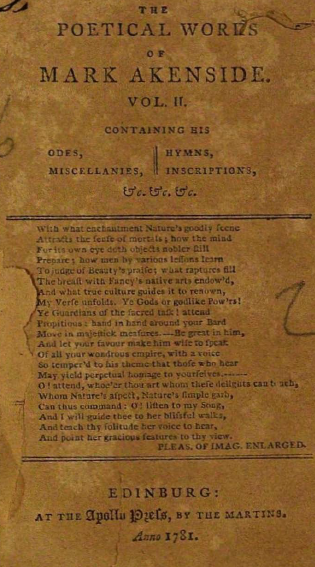 THE
POETICAL WORKS
OF
MARK AKENSIDE.
VOL. II.
CONTAINING HIS
ODES, HYMNS,
MISCELLANIES, INSCRIPTIONS,
&c. &c. &c.
With what enchantment Nature's goodly scene
Attracts the sense of mortals; how the mind
For its own eye doth objects nobler still
Prepare; how men by various lessons learn
To judge of Beauty's praise; what raptures fill
The breast with Fancy's native arts endow'd,
And what true culture guides it to renown,
My Verse unfolds. Ye Gods or godlike Pow'rs!
Ye Guardians of the sacred task! attend
Propitious: hand in hand around your Bard
Move in majestick measures.——Be great in him,
And let your favour make him wise to speak
Of all your wondrous empire, with a voice
So temper'd to his theme that those who hear
May yield perpetual homage to yourselves.——
O! attend, whoe'er thou art whom these delights can touch,
Whom Nature's aspect, Nature's simple garb,
Can thus command: O! listen to my Song,
And I will guide thee to her blissful walks,
And teach thy solitude her voice to hear,
And point her gracious features to thy view.
PLEAS. OF IMAG. ENLARGED.
EDINBURG:
AT THE Apollo Press, BY THE MARTINS.
Anno 1781.